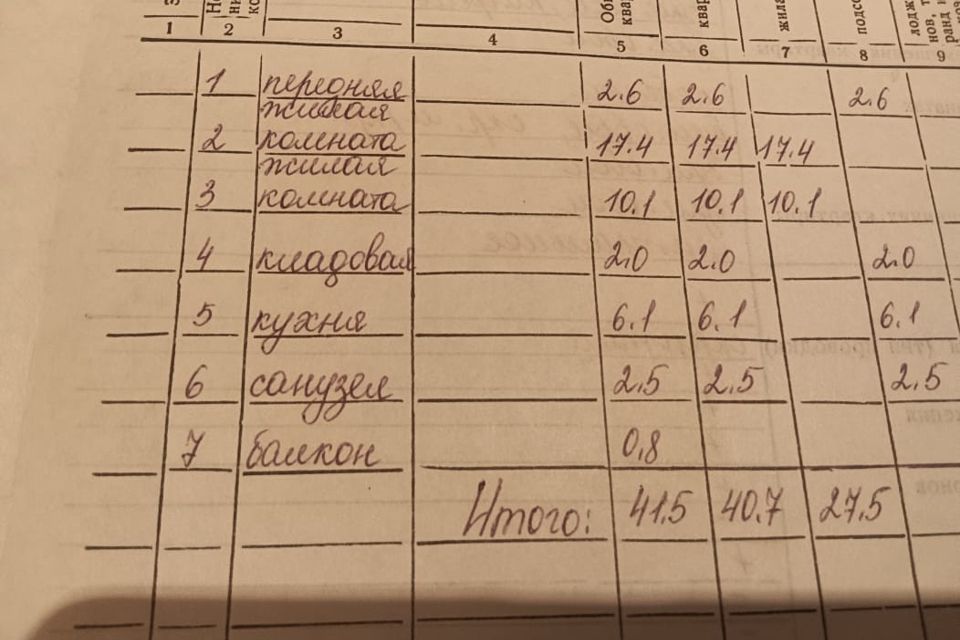 1 2 3 4 5 6 7 8 9
1 передняя 2.6 2.6 2.6
жилая
2 комната 17.4 17.4 17.4
жилая
3 комната 10.1 10.1 10.1
4 кладовая 2.0 2.0 2.0
5 кухня 6.1 6.1 6.1
6 санузел 2.5 2.5 2.5
7 балкон 0,8
Итого: 41.5 40.7 27.5